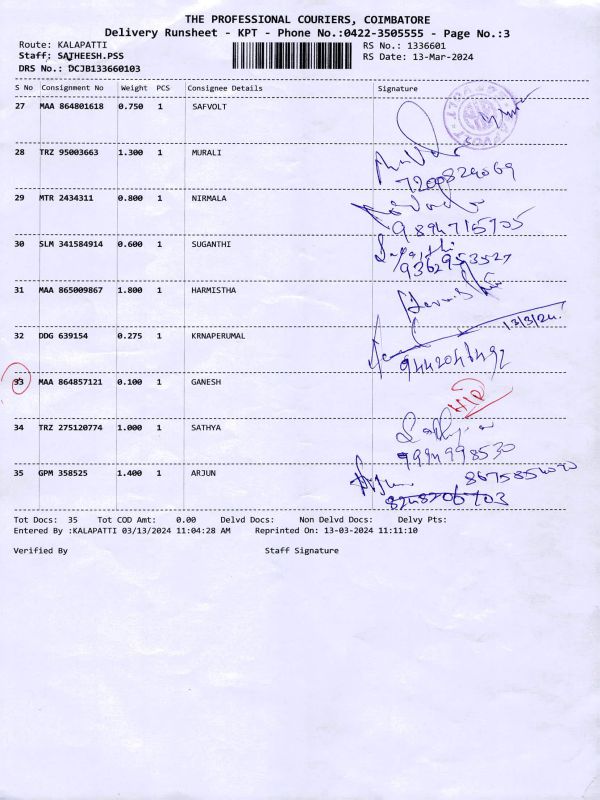 THE PROFESSIONAL COURIERS, COIMBATORE
Delivery Runsheet - KPT - Phone No.:0422-3505555 - Page No.:3
Route: KALAPATTI RS No.: 1336601
Staff: SATHEESH.PSS RS Date: 13-Mar-2024
DRS No.: DCJB133660103
S No Consignment No Weight PCS Consignee Details Signature
27 MAA 864801618 0.750 1 SAFVOLT
28 TRZ 95003663 1.300 1 MURALI
7200829069
29 MTR 2434311 0.800 1 NIRMALA
9894715705
30 SLM 341584914 0.600 1 SUGANTHI
9362953527
31 MAA 865009867 1.800 1 HARMISTHA
13/3/24.
32 DDG 639154 0.275 1 KRNAPERUMAL
33 MAA 864857121 0.100 1 GANESH
34 TRZ 275120774 1.000 1 SATHYA
Sathya
9994998530
35 GPM 358525 1.400 1 ARJUN
Arjun
Tot Docs: 35 Tot COD Amt: 0.00 Delvd Docs: Non Delvd Docs: Delvy Pts:
Entered By :KALAPATTI 03/13/2024 11:04:28 AM Reprinted On: 13-03-2024 11:11:10
Verified By Staff Signature